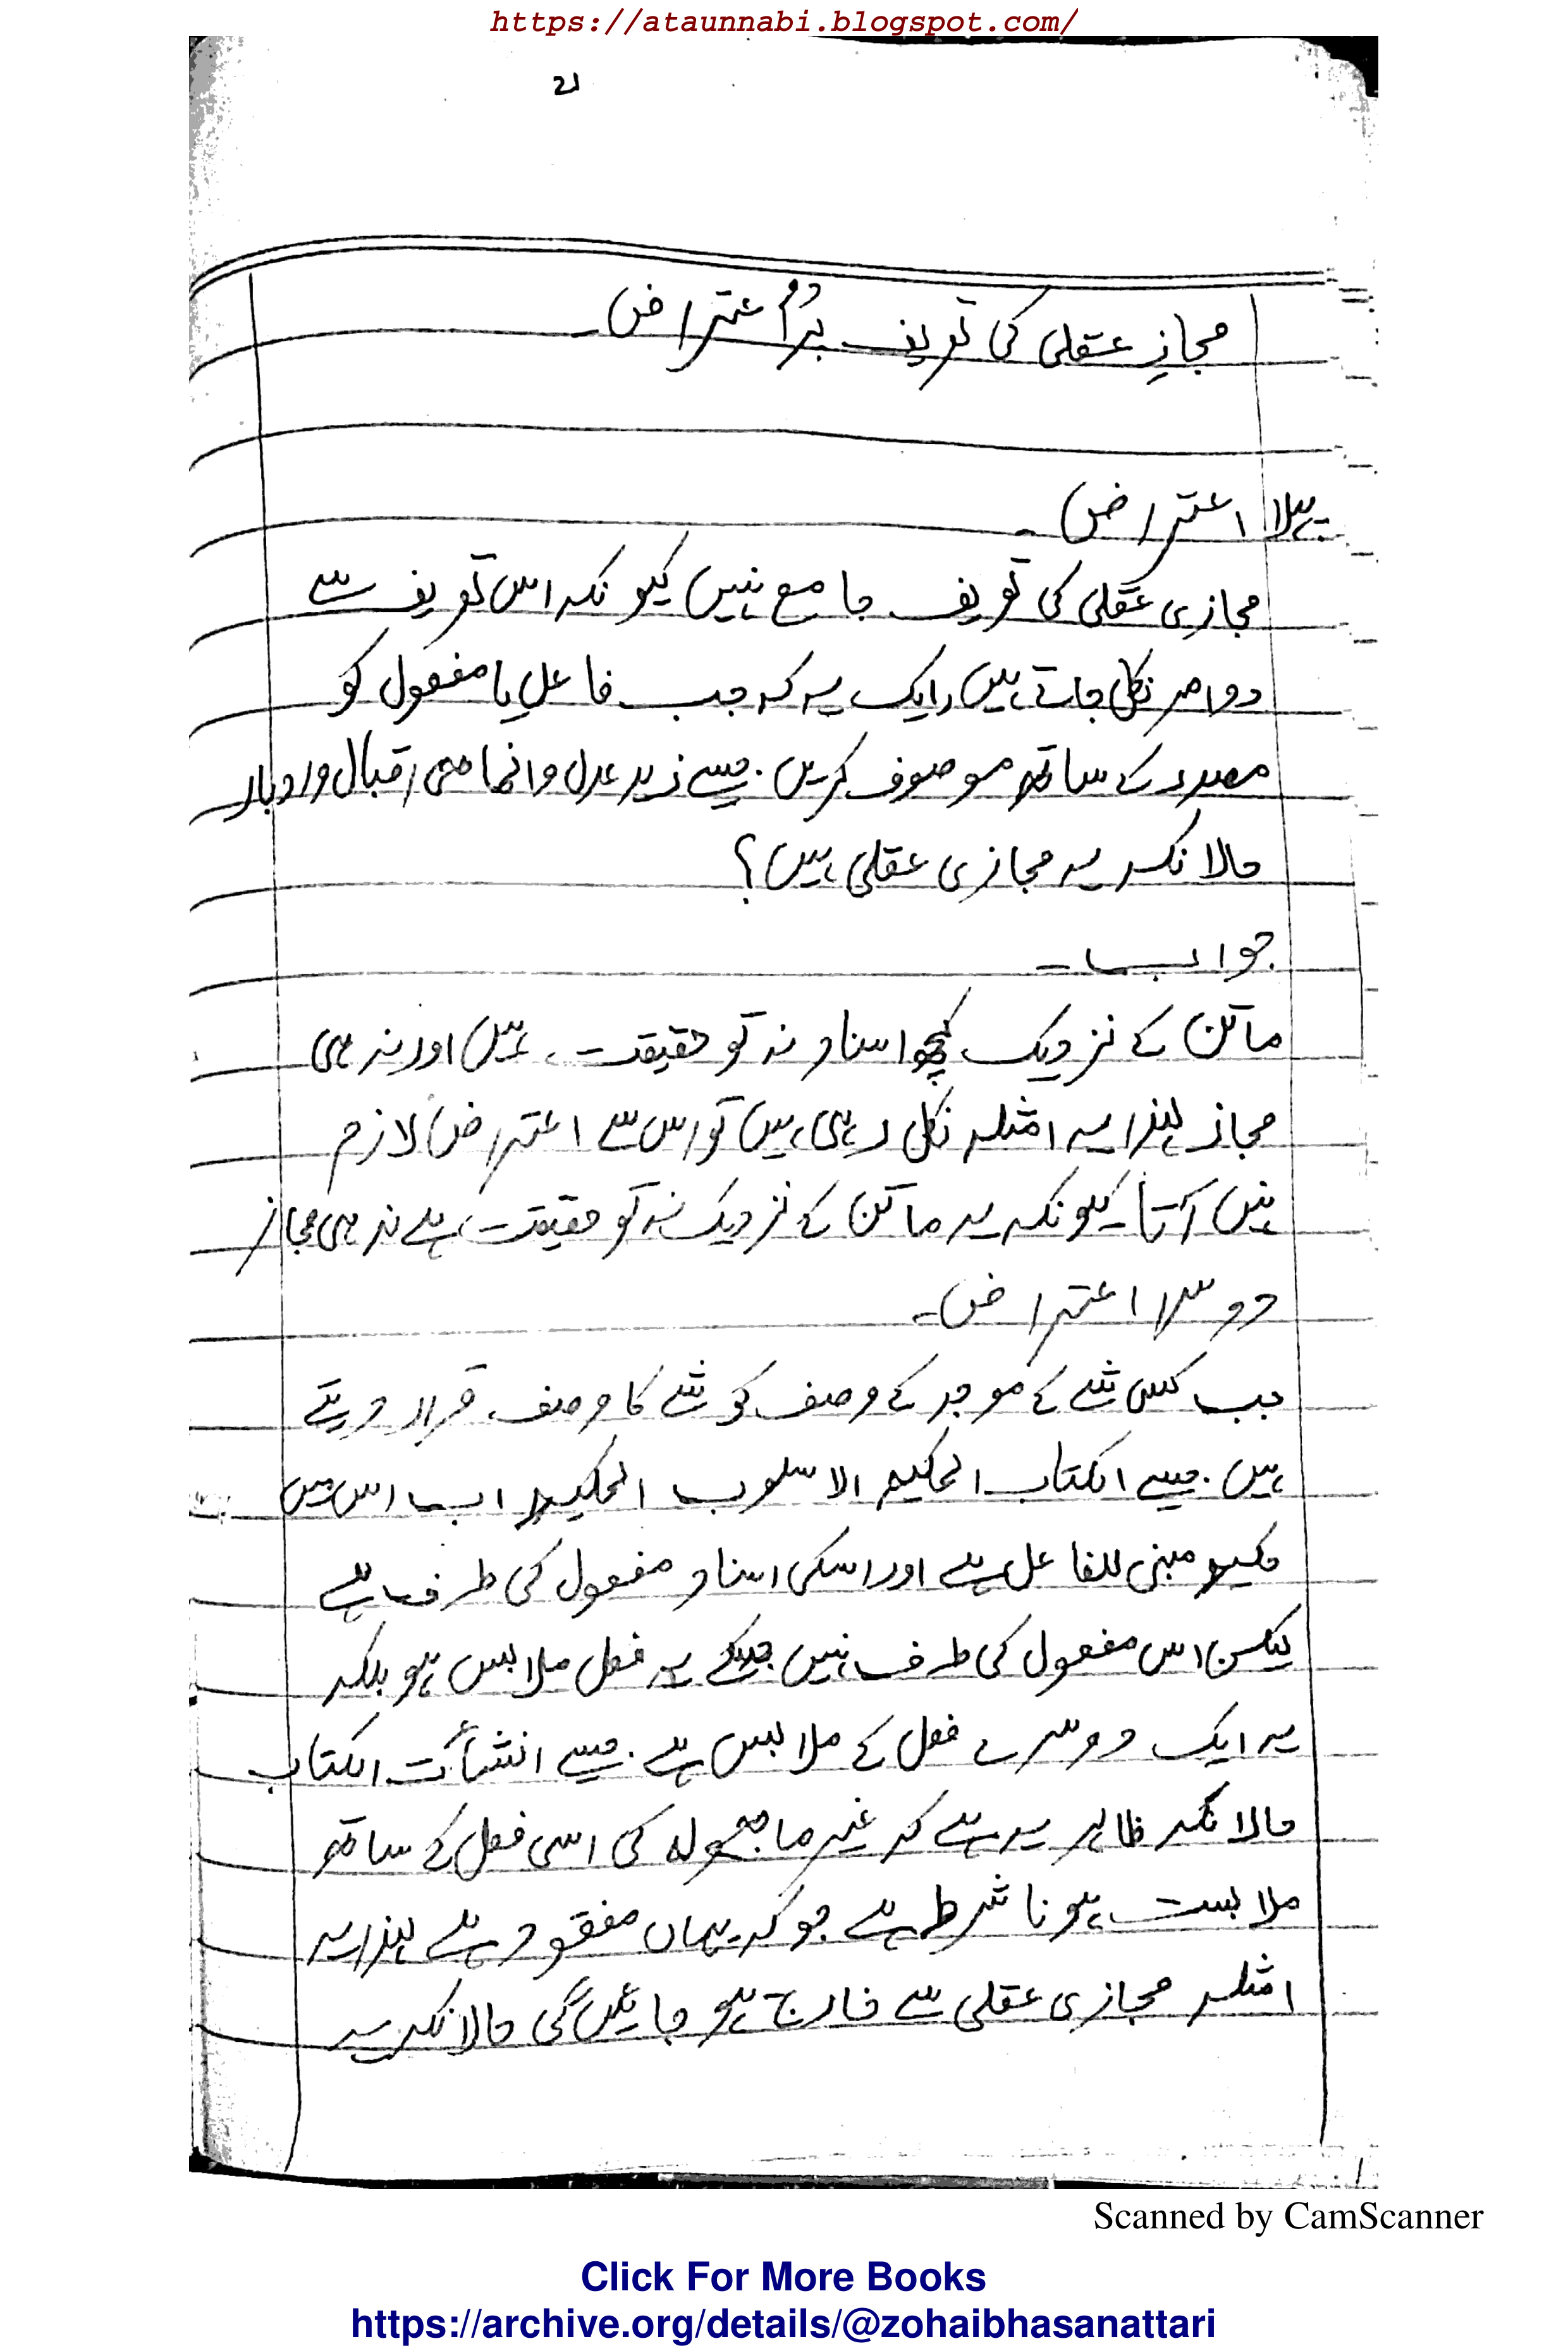 https://ataunnabi.blogspot.com/
21
مجازِ عقلی کی تعریف پر اعتراض۔
پہلا اعتراض۔
مجازی عقلی کی تعریف جامع نہیں کیونکہ اس تعریف سے
دو امر نکل جاتے ہیں، ایک یہ کہ جب فاعل یا مفعول کو
مصدر کے ساتھ موصوف کریں. جیسے زید عدل وانما ھی اقبال وادبار
حالانکہ یہ مجازی عقلی ہیں؟
جواب۔
ماتن کے نزدیک کچھ اسناد نہ تو حقیقت ہیں اور نہ ہی
مجاز لہٰذا یہ امثلہ نکل رہی ہیں تو اس سے اعتراض لازم
نہیں آتا کیونکہ یہ ماتن کے نزدیک نہ تو حقیقت ہے نہ ہی مجاز
دوسرا اعتراض۔
جب کسی شے کے موجد کے وصف کو شے کا وصف قرار دیتے
ہیں. جیسے الکتاب الحکیم الاسلوب الحکیم اب اس میں
حکیم مبنی للفاعل ہے اور اسکی اسناد مفعول کی طرف ہے
لیکن اس مفعول کی طرف نہیں جسکے یہ فعل ملابس ہو بلکہ
یہ ایک دوسرے فعل کے ملابس ہے. جیسے انشأت الکتاب
حالانکہ ظاہر یہ ہے کہ غیر ما ھو لہ کی اسی فعل کے ساتھ
ملابست ہونا شرط ہے جو کہ یہاں مفقود ہے لہٰذا یہ
امثلہ مجازی عقلی سے خارج ہو جائیں گی حالانکہ یہ
Scanned by CamScanner
Click For More Books
https://archive.org/details/@zohaibhasanattari